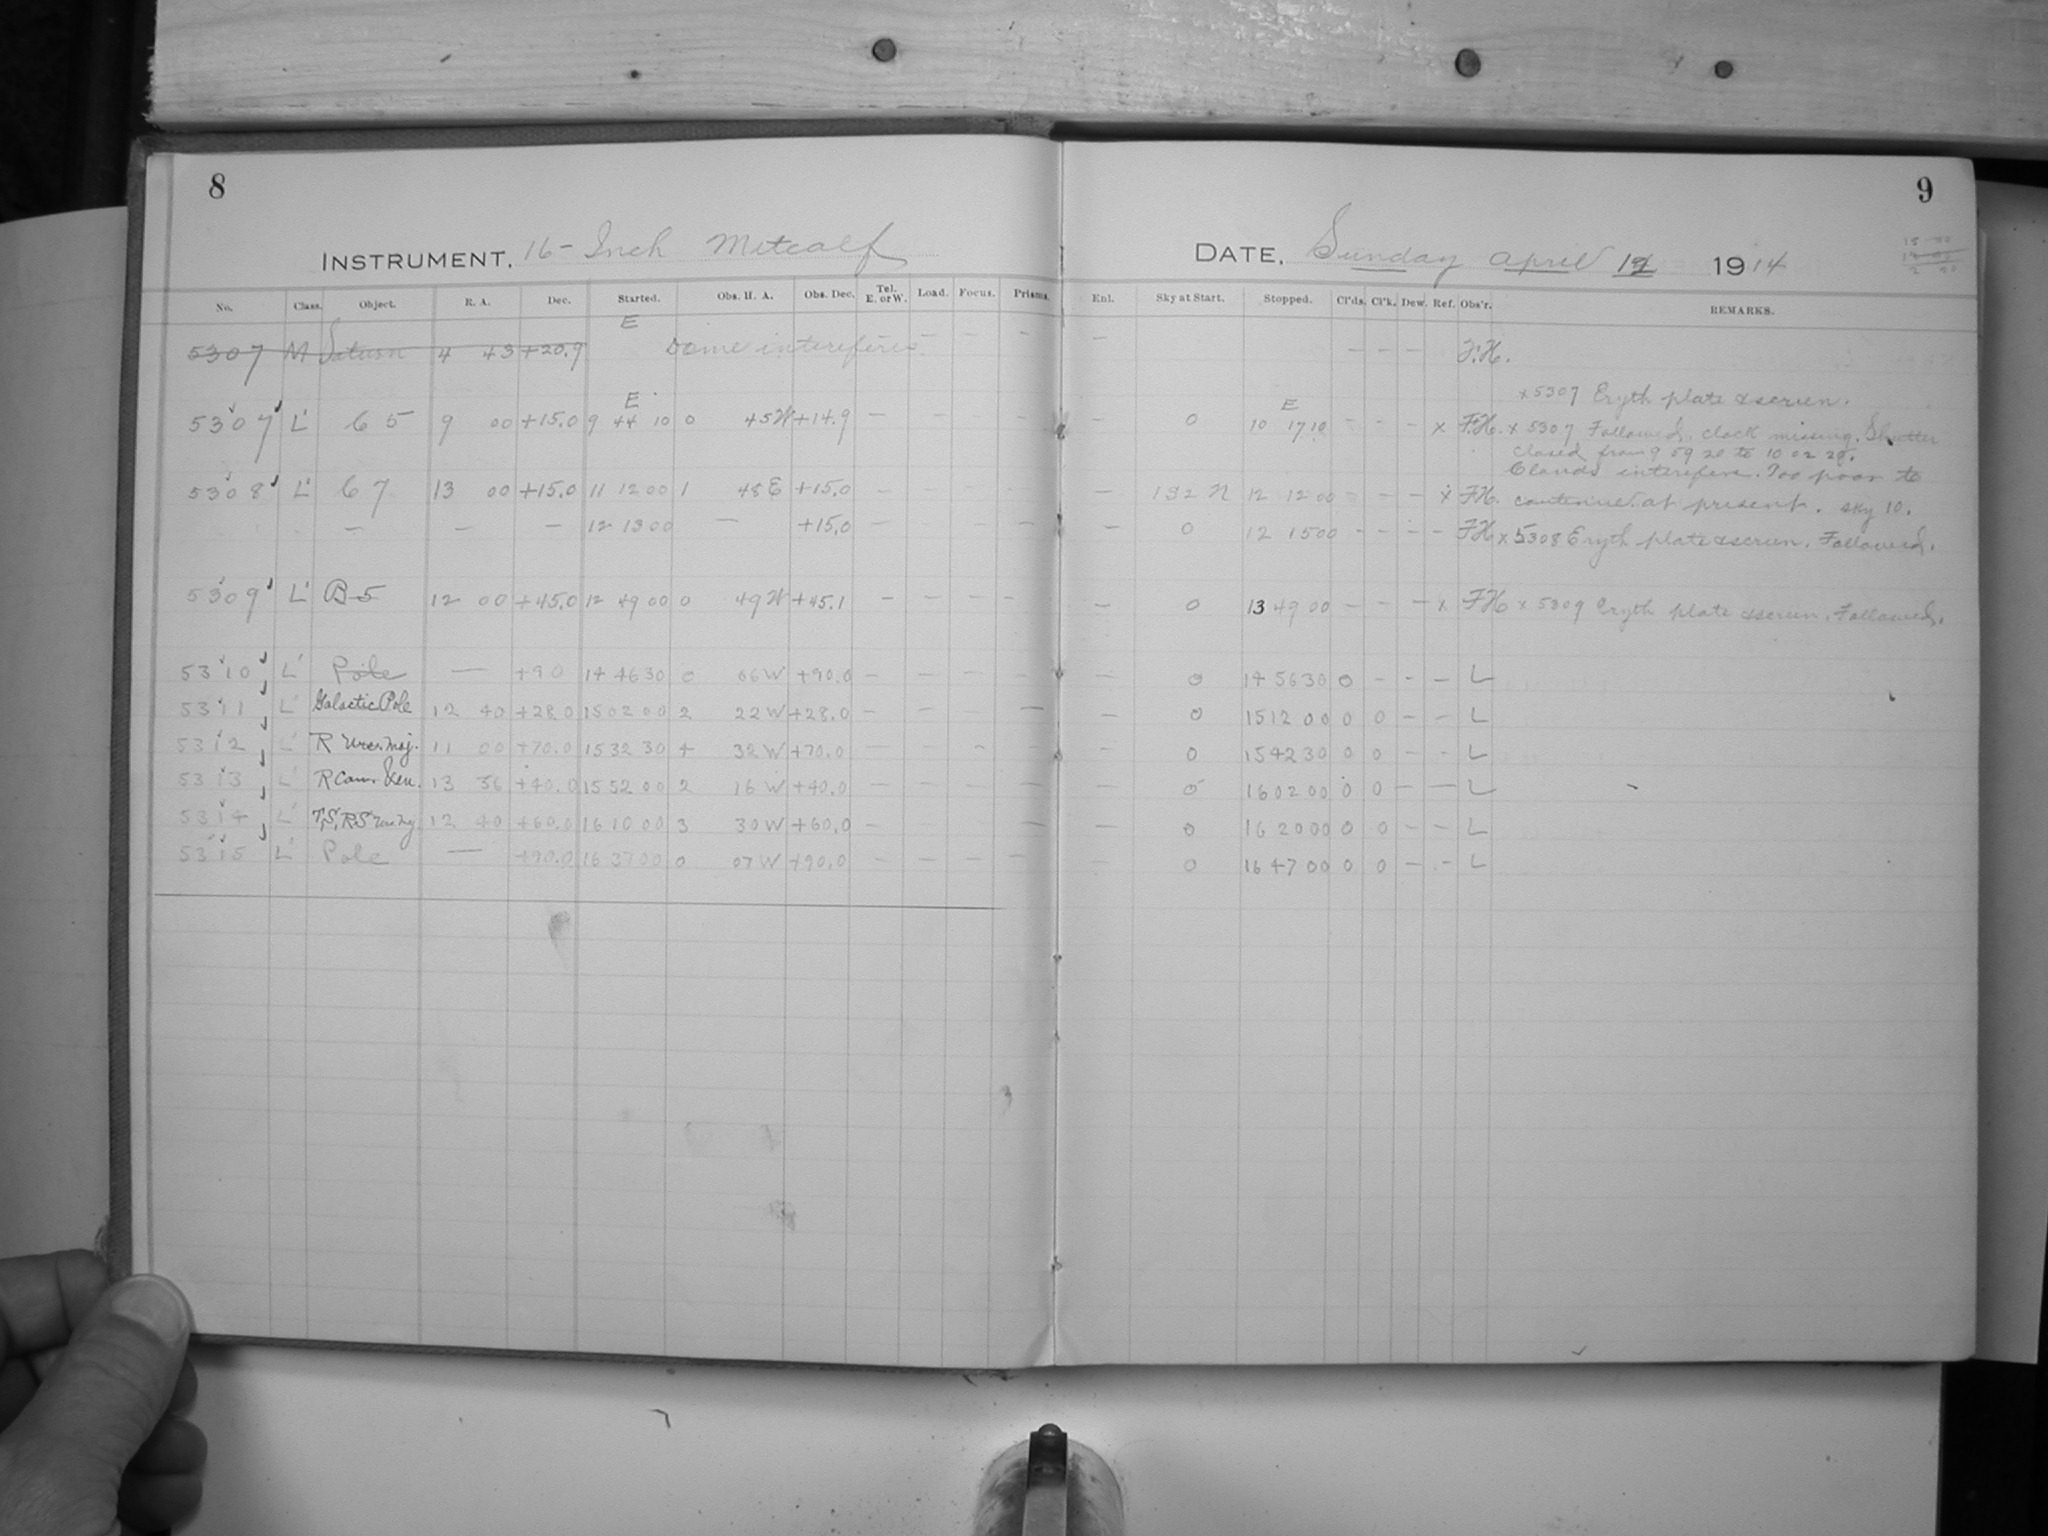 8
9
INSTRUMENT. 16-Inch Metcalf
DATE. Sunday April 12 1914
No. Class. Object. R. A. Dec. Started. Obs. H. A. Obs. Dec. Tel. E. or W. Load. Focus. Prisms. Enl. Sky at Start. Stopped. Cl'ds. Cl'k. Dew. Ref. Obs'r. REMARKS.
E
5307 M Saturn 4 43 +20.9 Dome interferes — — — — — — — — F.H.
E E x 5307 Eryth plate & screen.
5307 L' 65 9 00 +15.0 9 44 10 0 45 W +14.9 — — — — — 0 10 17 10 — — — x F.H. x 5307 Followed, clock missing. Shutter
closed from 9 59 20 to 10 02 20.
Clouds interfere. Too poor to
5308 L' 67 13 00 +15.0 11 12 00 1 48 E +15.0 — — — — — 192 N 12 12 00 — — — x FH. continue at present. sky 10.
— — — 12 13 00 — +15.0 — — — — — 0 12 15 00 — — — — FH x 5308 Eryth plate & screen. Followed.
5309 L' B5 12 00 +45.0 12 49 00 0 49 W +45.1 — — — — — 0 13 49 00 — — — x FH x 5309 Eryth plate & screen. Followed.
5310 L' Pole — +90 14 46 30 0 06 W +90.0 — — — — — 0 14 56 30 0 — — — L
5311 L' Galactic Pole 12 40 +28.0 15 02 00 2 22 W +28.0 — — — — — 0 15 12 00 0 0 — — L
5312 L' R Urs. Maj. 11 00 +70.0 15 32 30 4 32 W +70.0 — — — — — 0 15 42 30 0 0 — — L
5313 L' R Can. Ven. 13 56 +40.0 15 52 00 2 16 W +40.0 — — — — — 0 16 02 00 0 0 — — L
5314 L' T,S,RS Urs. Maj. 12 40 +60.0 16 10 00 3 30 W +60.0 — — — — — 0 16 20 00 0 0 — — L
5315 L' Pole — +90.0 16 37 00 0 07 W +90.0 — — — — — 0 16 47 00 0 0 — — L